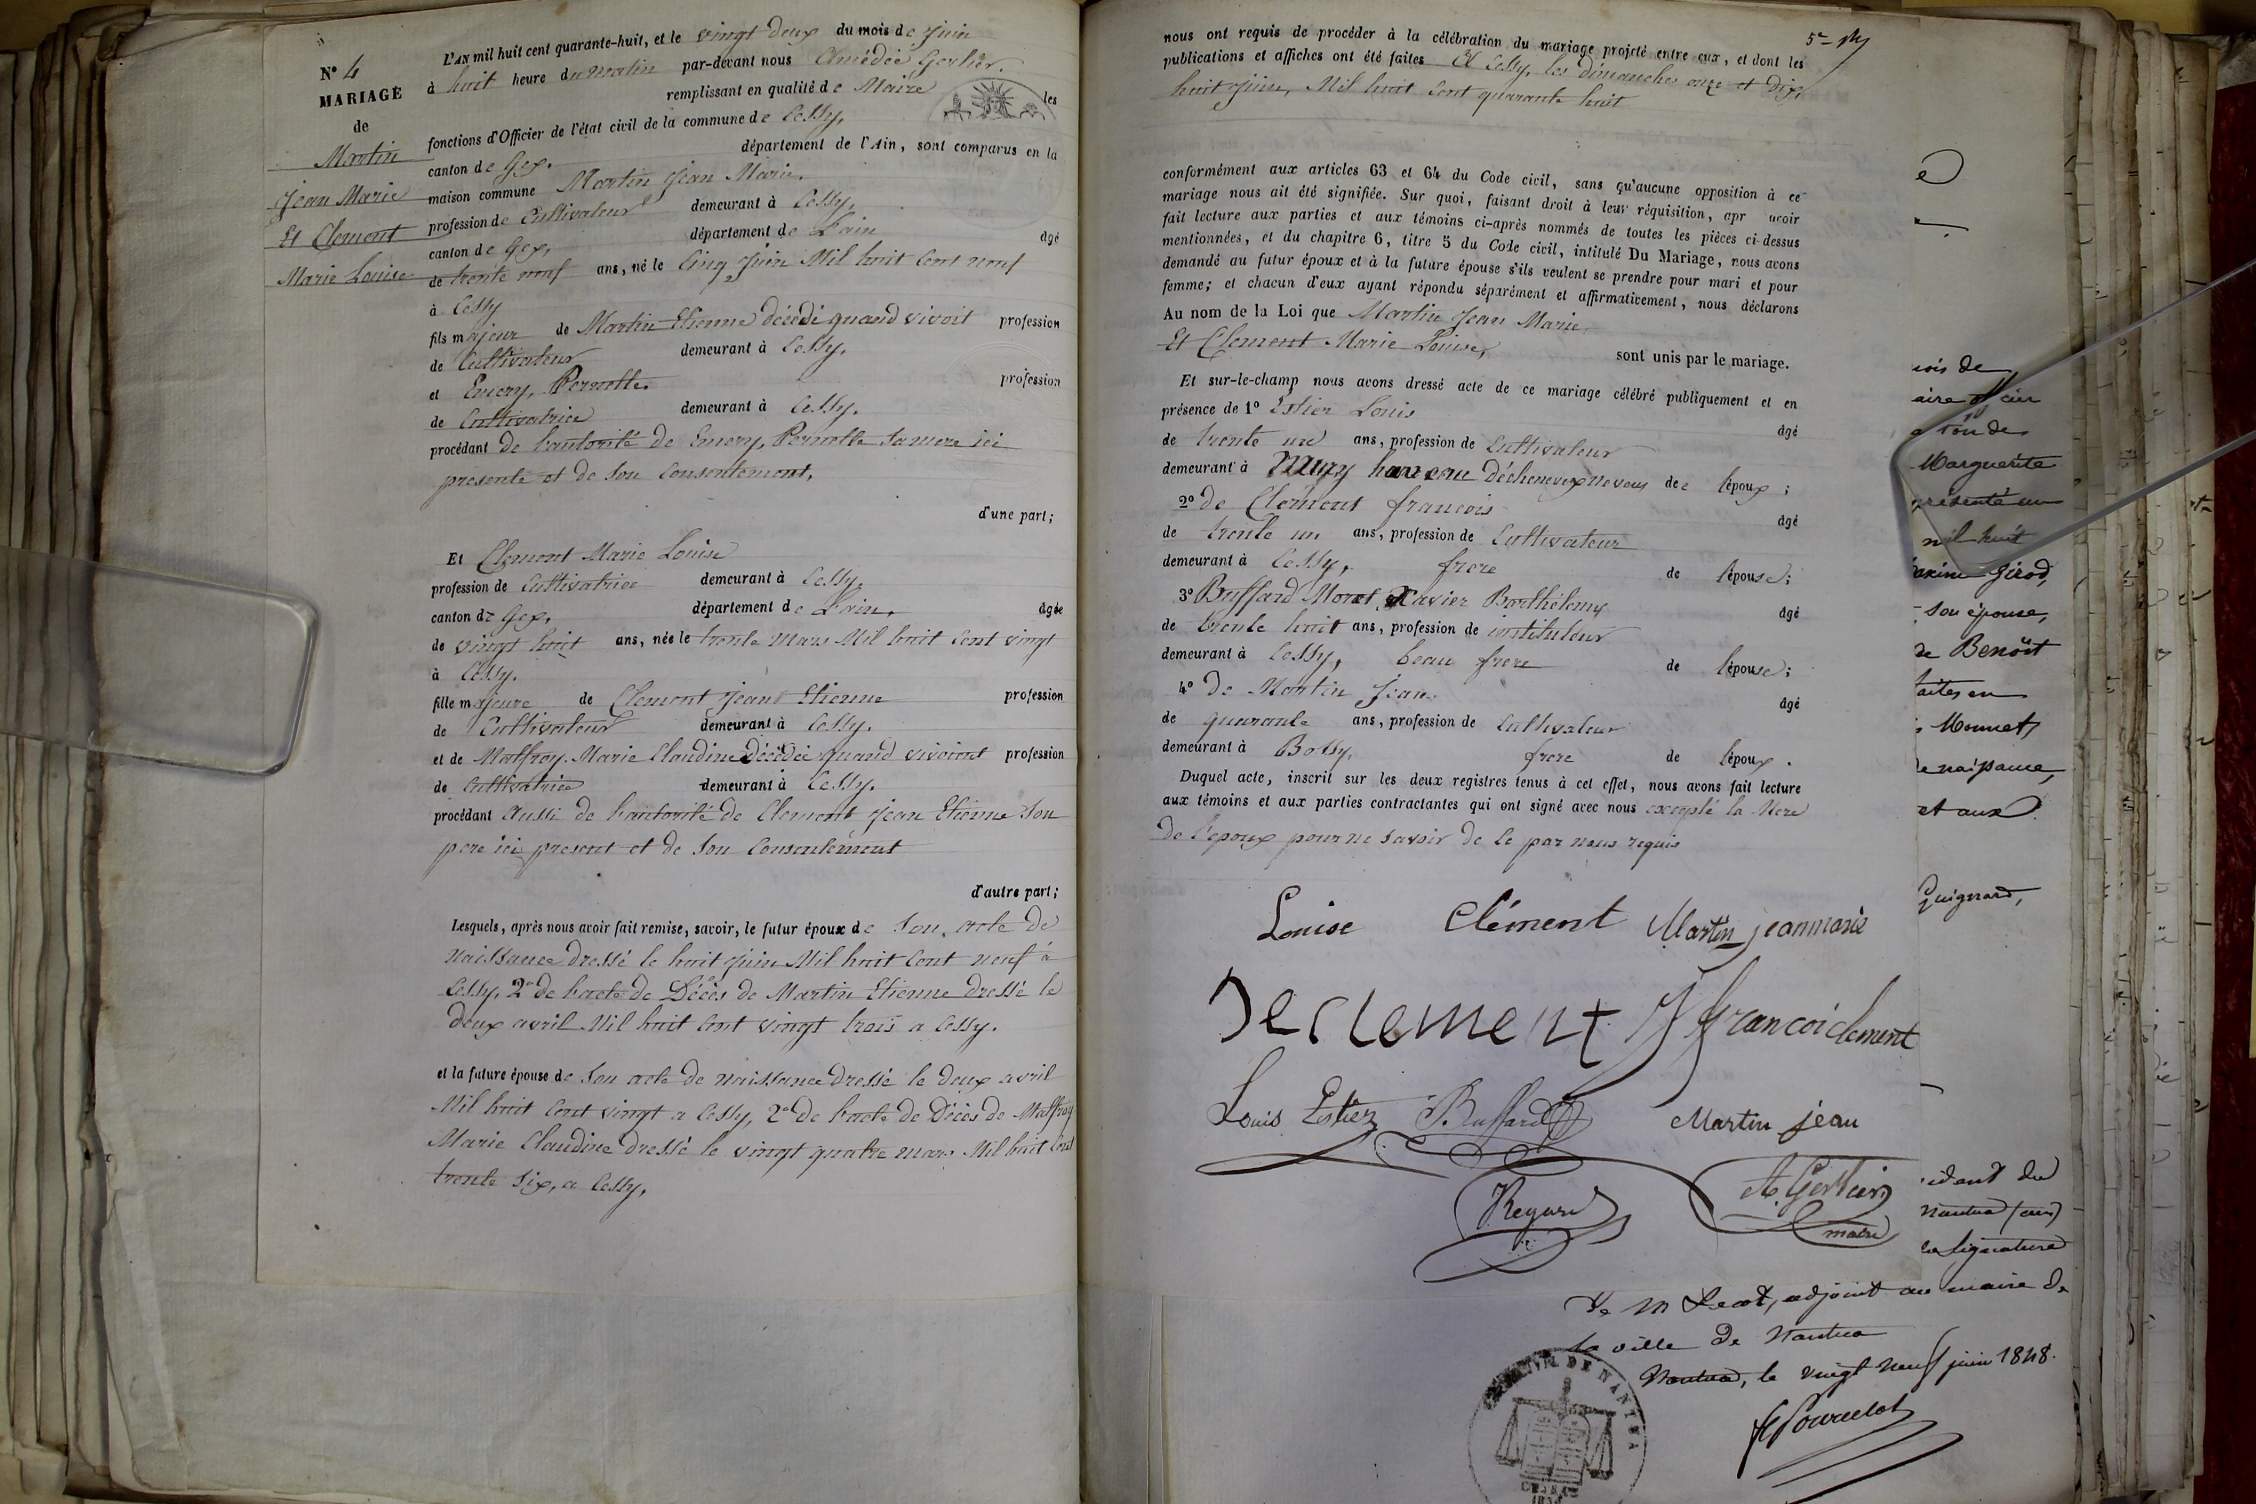 N° 4
MARIAGE
de
Martin
Jean Marie
Et Clement
Marie Louise
L'AN mil huit cent quarante-huit, et le vingt deux du mois de Juin
à huit heure du matin par-devant nous Amédée Gerlier.
remplissant en qualité de Maire les
fonctions d'Officier de l'état civil de la commune de Cessy,
canton de Gex. département de l'Ain, sont comparus en la
maison commune Martin Jean Marie.
profession de Cultivateur demeurant à Cessy,
canton de Gex, département de L'ain âgé
de trente neuf ans, né le Cinq Juin Mil huit Cent neuf
à Cessy
fils majeur de Martin Etienne décédé quand vivoit profession
de Cultivateur demeurant à Cessy.
et Emery, Pernette. profession
de Cultivatrice demeurant à Cessy.
procédant de l'autorité de Emery, Pernette sa mere ici
presente et de son Consentement.
d'une part;
Et Clement Marie Louise
profession de Cultivatrice demeurant à Cessy,
canton de Gex, département de L'ain. âgée
de vingt huit ans, née le trente Mars Mil huit Cent vingt
à Cessy.
fille majeure de Clement Jean Etienne profession
de Cultivateur demeurant à Cessy.
et de Maffroy Marie Claudine Décédée quand vivoint profession
de Cultivatrice demeurant à Cessy.
procédant Aussi de l'autorité de Clement Jean Etienne Son
pere ici present et de son Consentement
d'autre part;
Lesquels, après nous avoir fait remise, savoir, le futur époux de Son acte de
naissance dressé le huit Juin Mil huit Cent neuf à
Cessy, 2° de l'acte de Décès de Martin Etienne dressé le
deux avril Mil huit Cent vingt trois a Cessy.
et la future épouse de Son acte de naissance dressé le deux avril
Mil huit Cent vingt a Cessy, 2° de l'acte de Décès de Maffroy
Marie Claudine dressé le vingt quatre mars Mil huit Cent
trente Six, a Cessy,
nous ont requis de procéder à la célébration du mariage projeté entre eux, et dont les
publications et affiches ont été faites A Cessy, les dimanches onze et dix
huit Juin, Mil huit Cent quarante huit
conformément aux articles 63 et 64 du Code civil, sans qu'aucune opposition à ce
mariage nous ait été signifiée. Sur quoi, faisant droit à leur réquisition, apr avoir
fait lecture aux parties et aux témoins ci-après nommés de toutes les pièces ci-dessus
mentionnées, et du chapitre 6, titre 5 du Code civil, intitulé Du Mariage, nous avons
demandé au futur époux et à la future épouse s'ils veulent se prendre pour mari et pour
femme; et chacun d'eux ayant répondu séparément et affirmativement, nous déclarons
Au nom de la Loi que Martin Jean Marie
Et Clement Marie Louise, sont unis par le mariage.
Et sur-le-champ nous avons dressé acte de ce mariage célébré publiquement et en
présence de 1° Estier Louis âgé
de trente un ans, profession de Cultivateur
demeurant à neveu de l'époux;
2° de Clement francois âgé
de trente un ans, profession de Cultivateur
demeurant à Cessy, frere de l'épouse;
3° Buffard Moret Xavier Barthélemy âgé
de trente huit ans, profession de instituteur
demeurant à Cessy, beau frere de l'épouse;
4° de Martin Jean. âgé
de quarante ans, profession de Cultivateur
demeurant à frere de l'époux.
Duquel acte, inscrit sur les deux registres tenus à cet effet, nous avons fait lecture
aux témoins et aux parties contractantes qui ont signé avec nous excepté la Mere
de l'epoux pour ne savoir de ce par nous requis
Louise Clément Martin jeanmarie
JeClement francoiclement
Louis Estier Buffard Martin jean
Regard A. Gerlier
maire
de
Marguerite
mil huit
Girod,
son épouse,
de Benoît
Monnet
naissance,
et aux
Guignard,
Nantua (ain)
la signature
de M adjoint au maire de
la ville de Nantua
Nantua, le vingt neuf juin 1848.
DE NANTUA